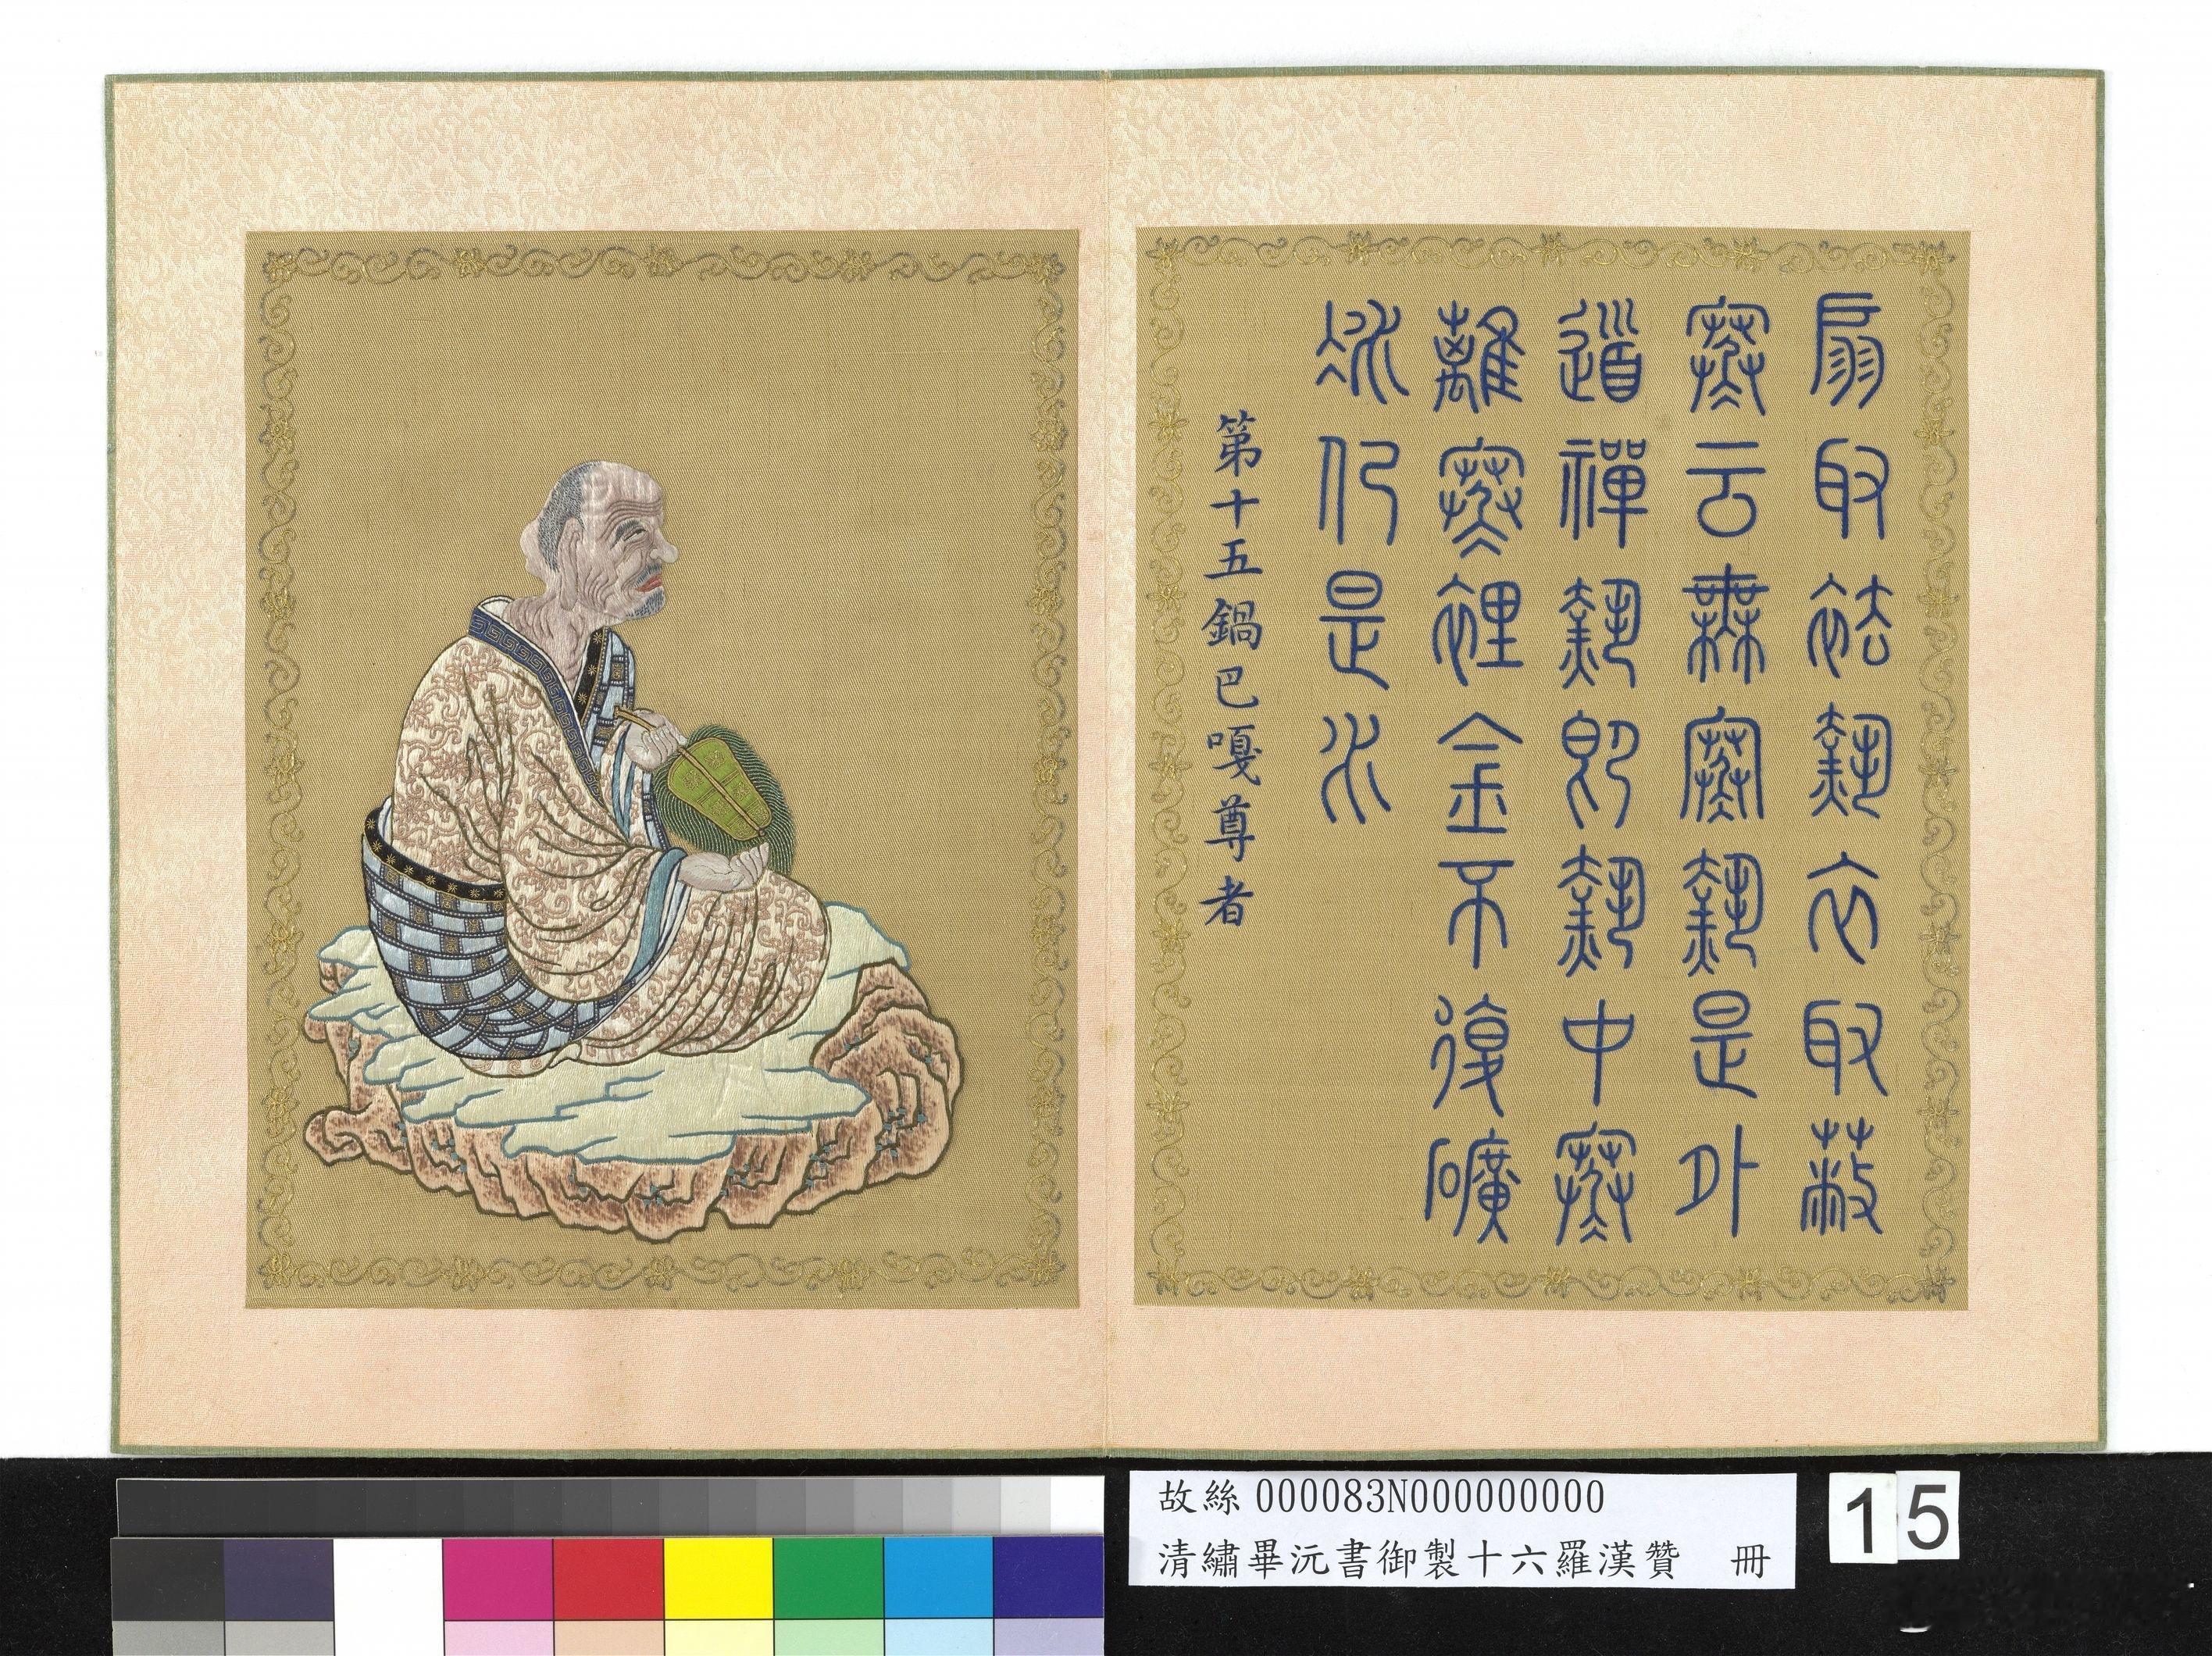 扇取祛熱衣取蔽
寒云無寒熱是外
道禪熱即熱中寒
離寒裡金不復礦
冰仍是水
第十五鍋巴嘎尊者
故絲 000083N000000000
清繡畢沅書御製十六羅漢贊 冊
15